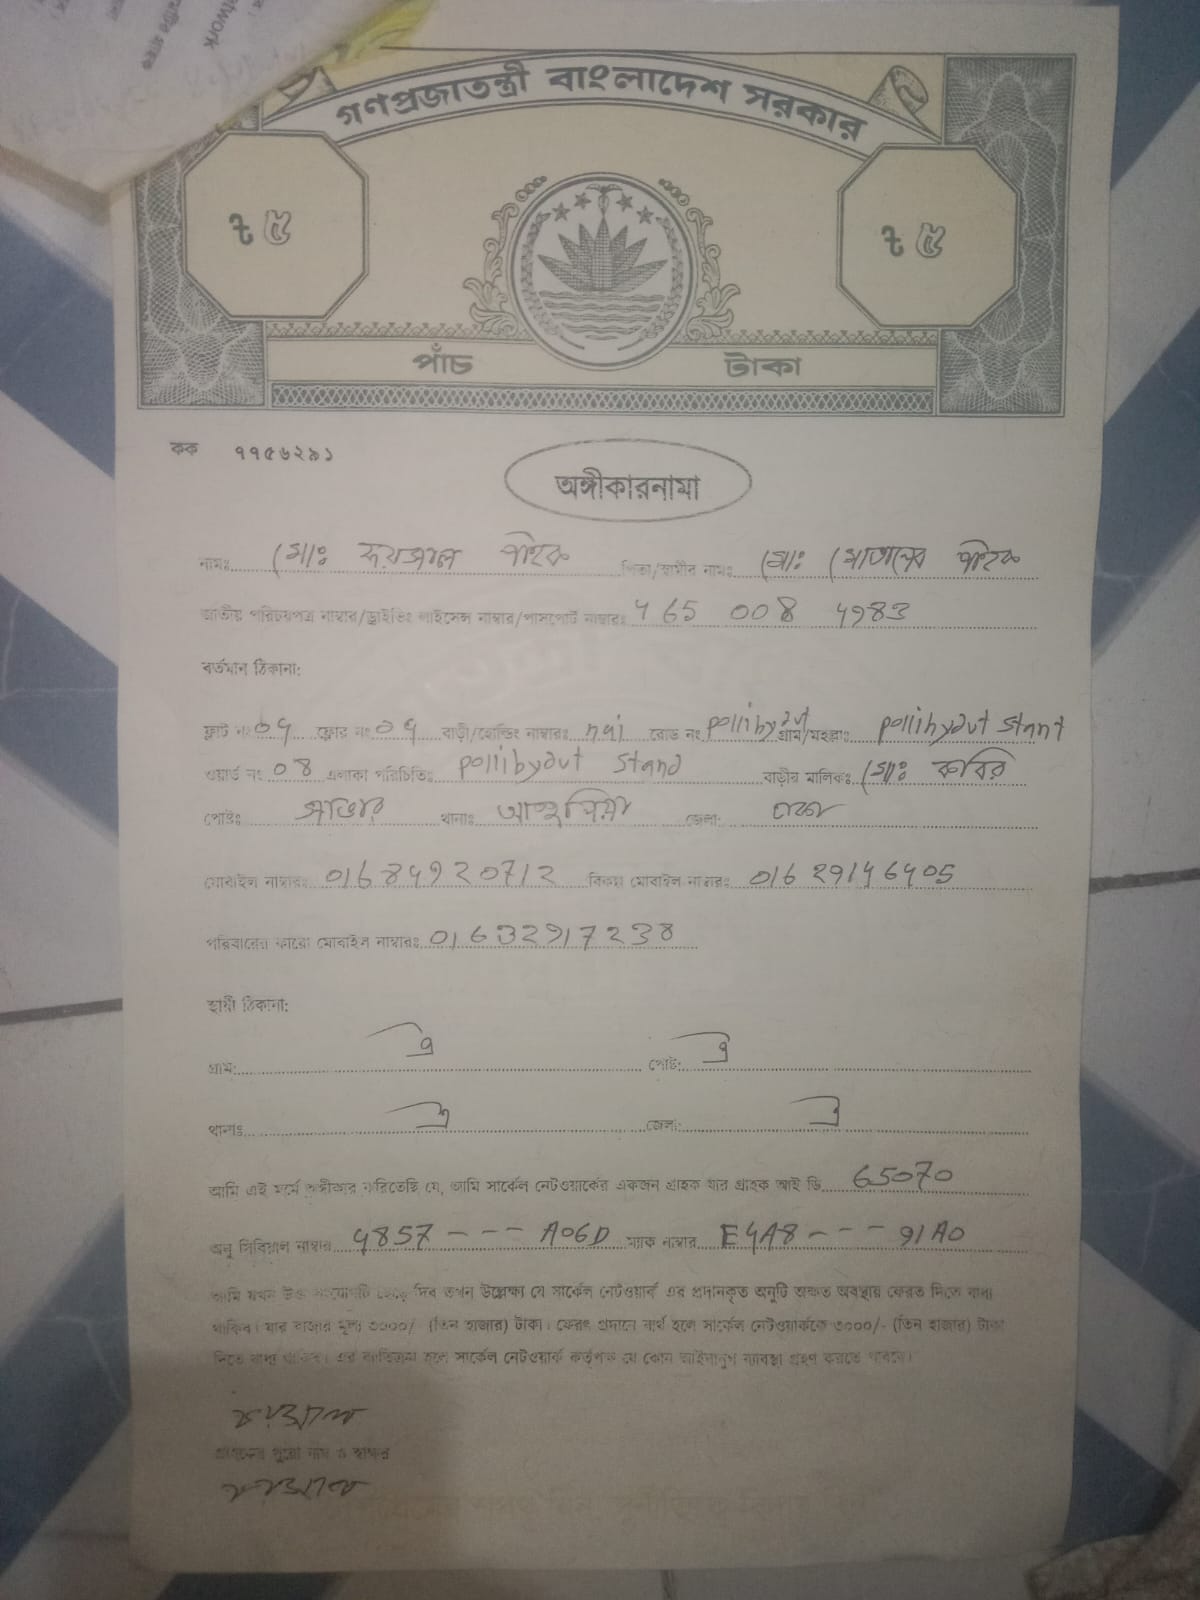 গণপ্রজাতন্ত্রী বাংলাদেশ সরকার
৳ ৫ ৳ ৫
পাঁচ টাকা
কক ৭৭৫৬২৯১
অঙ্গীকারনামা
নামঃ মোঃ ফয়সাল পাইক পিতা/স্বামীর নামঃ মোঃ মোতালেব পাইক
জাতীয় পরিচয়পত্র নাম্বার/ড্রাইভিং লাইসেন্স নাম্বার/পাসপোর্ট নাম্বারঃ ৭ 65 008 ৭983
বর্তমান ঠিকানা:
ফ্লাট নং ০৭ ফ্লোর নং ০৭ বাড়ী/হোল্ডিং নাম্বারঃ nai রোড নং pollibydut গ্রাম/মহল্লাঃ pollibydut stant
ওয়ার্ড নং 08 এলাকা পরিচিতিঃ pollibydut stand বাড়ীর মালিকঃ মোঃ কবির
পোষ্টঃ সাভার থানাঃ আশুলিয়া জেলা: ঢাকা
মোবাইল নাম্বারঃ 01684920712 বিকল্প মোবাইল নাম্বারঃ
পরিবারের কারো মোবাইল নাম্বারঃ 01632917238
স্থায়ী ঠিকানা:
গ্রাম: ঐ পোষ্ট: ঐ
থানাঃ ঐ জেলা: ঐ
আমি এই মর্মে অঙ্গীকার করিতেছি যে, আমি সার্কেল নেটওয়ার্কের একজন গ্রাহক যার গ্রাহক আই ডি 65070
অনু সিরিয়াল নাম্বার 4857 --- A06D ম্যাক নাম্বার E4A8 --- 91A0
আমি যখন উক্ত সংযোগটি ছেড়ে দিব তখন উল্লেক্ষ্য যে সার্কেল নেটওয়ার্ক এর প্রদানকৃত অনুটি অক্ষত অবস্থায় ফেরত দিতে বাধ্য
থাকিব। যার বাজার মূল্য ৩০০০/- (তিন হাজার) টাকা। ফেরৎ প্রদানে ব্যর্থ হলে সার্কেল নেটওয়ার্ককে ৩০০০/- (তিন হাজার) টাকা
দিতে বাধ্য থাকিব। এর ব্যতিক্রম হলে সার্কেল নেটওয়ার্ক কর্তৃপক্ষ যে কোন আইনানুগ ব্যবস্থা গ্রহণ করতে পারবে।
ফয়সাল
গ্রাহকের পুরো নাম ও স্বাক্ষর
ফয়সাল